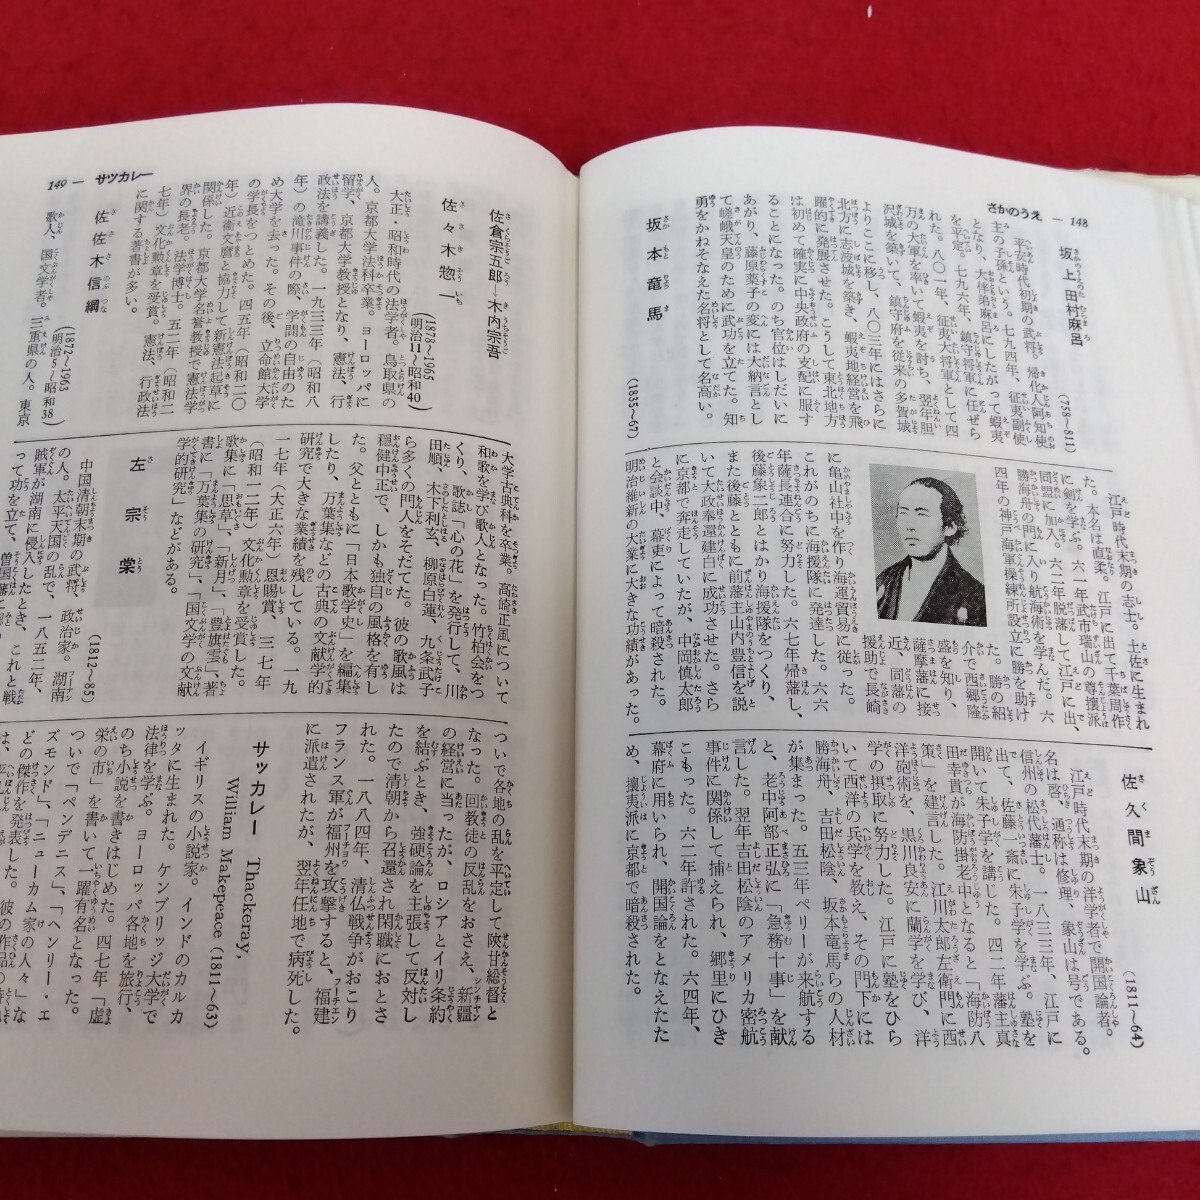 さかのうえ — 148
坂上田村麻呂
(758〜811)
平安時代初期の武将。帰化人阿知使
主の子孫という。七九四年、征夷副使
となり、大伴弟麻呂にしたがって蝦夷
を平定。七九六年、鎮守将軍に任ぜら
れた。八〇一年、征夷大将軍として四
万の大軍を率いて蝦夷を討ち、翌年胆
沢城を築いて、鎮守府を従来の多賀城
よりここに移し、八〇三年にはさらに
北方に志波城を築き、蝦夷地経営を飛
躍的に発展させた。こうして東北地方
は初めて確実に中央政府の支配に服す
ることになった。のち官位はしだいに
あがり、藤原薬子の変には大納言とし
て嵯峨天皇のために武功を立てた。知
勇をかねそなえた名将として名高い。
坂本竜馬
(1835〜67)
江戸時代末期の志士。土佐に生まれ
た。本名は直柔。江戸に出て千葉周作
に剣を学ぶ。六一年武市瑞山の尊攘派
同盟に加入。六二年脱藩して江戸に出、
勝海舟の門に入り航海術を学んだ。六
四年の神戸海軍操練所設立に勝を助け
た。勝の紹
介で西郷隆
盛を知り、
薩摩藩に接
近、同藩の
援助で長崎
に亀山社中を作り海運貿易に従った。
これがのちに海援隊に発達した。六六
年薩長連合に努力した。六七年帰藩し、
後藤象二郎とはかり海援隊をつくり、
また後藤とともに前藩主山内豊信を説
いて大政奉還建白に成功させた。さら
に京都で奔走していたが、中岡慎太郎
と会談中、幕吏によって暗殺された。
明治維新の大業に大きな功績があった。
佐久間象山
(1811〜64)
江戸時代末期の洋学者で開国論者。
名は啓、通称は修理、象山は号である。
信州の松代藩士。一八三三年、江戸に
出て、佐藤一斎に朱子学を学ぶ。塾を
開いて朱子学を講じた。四二年藩主真
田幸貫が海防掛老中となると「海防八
策」を建言した。江川太郎左衛門に西
洋砲術を、黒川良安に蘭学を学び、洋
学の摂取に努力した。江戸に塾をひら
いて西洋の兵学を教え、その門下には
勝海舟、吉田松陰、坂本竜馬らの人材
が集まった。五三年ペリーが来航する
と、老中阿部正弘に「急務十事」を献
言した。翌年吉田松陰のアメリカ密航
事件に関係して捕えられ、郷里にひき
こもった。六二年許された。六四年、
幕府に用いられ、開国論をとなえたた
め、攘夷派に京都で暗殺された。
149 — サツカレー
佐倉宗五郎→木内宗吾
佐々木惣一
(1878〜1965
明治11〜昭和40)
大正・昭和時代の法学者。鳥取県の
人。京都大学法科卒業。ヨーロッパに
留学、京都大学教授となり、憲法、行
政法を講義した。一九三三年(昭和八
年)の滝川事件の際、学問の自由のた
め大学を去った。その後、立命館大学
の学長をつとめた。四五年(昭和二〇
年)近衛文麿と協力して新憲法起草に
関係した。京都大学名誉教授で憲法学
界の長老。法学博士。五二年(昭和二
七年)文化勲章を受賞。憲法、行政法
に関する著書が多い。
佐佐木信綱
(1872〜1963
明治5〜昭和38)
歌人、国文学者。三重県の人。東京
大学古典科を卒業。高崎正風について
和歌を学び歌人となった。竹柏会をつ
くり、歌誌「心の花」を発行して、川
田順、木下利玄、柳原白蓮、九条武子
ら多くの門人をそだてた。彼の歌風は
穏健中正で、しかも独自の風格を有し
た。父とともに「日本歌学史」を編集
したり、万葉集などの古典の文献学的
研究で大きな業績を残している。一九
一七年(大正六年)恩賜賞、三七年
(昭和一二年)文化勲章を受賞した。
歌集に「思草」、「新月」、「豊旗雲」、著
書に「万葉集の研究」、「国文学の文献
学的研究」などがある。
左宗棠
(1812〜85)
中国清朝末期の武将、政治家。湖南
の人。太平天国の乱で、一八五二年、
賊軍が湖南に侵入したとき、これと戦
って功を立て、曽国藩に
ついで各地の乱を平定して陝甘総督と
なった。回教徒の反乱をおさえ、新疆
の経営に当ったが、ロシアとイリ条約
を結ぶとき、強硬論を主張して反対し
たので清朝から召還され閑職におとさ
れた。一八八四年、清仏戦争がおこり
フランス軍が福州を攻撃すると、福建
に派遣されたが、翌年任地で病死した。
サッカレー Thackeray,
William Makepeace (1811〜63)
イギリスの小説家。インドのカルカ
ッタに生まれた。ケンブリッジ大学で
法律を学ぶ。ヨーロッパ各地を旅行、
のち小説を書きはじめた。四七年「虚
栄の市」を書いて一躍有名となった。
ついで「ペンデニス」、「ヘンリー・エ
ズモンド」、「ニューカム家の人々」な
どの傑作を発表した。彼の作品の